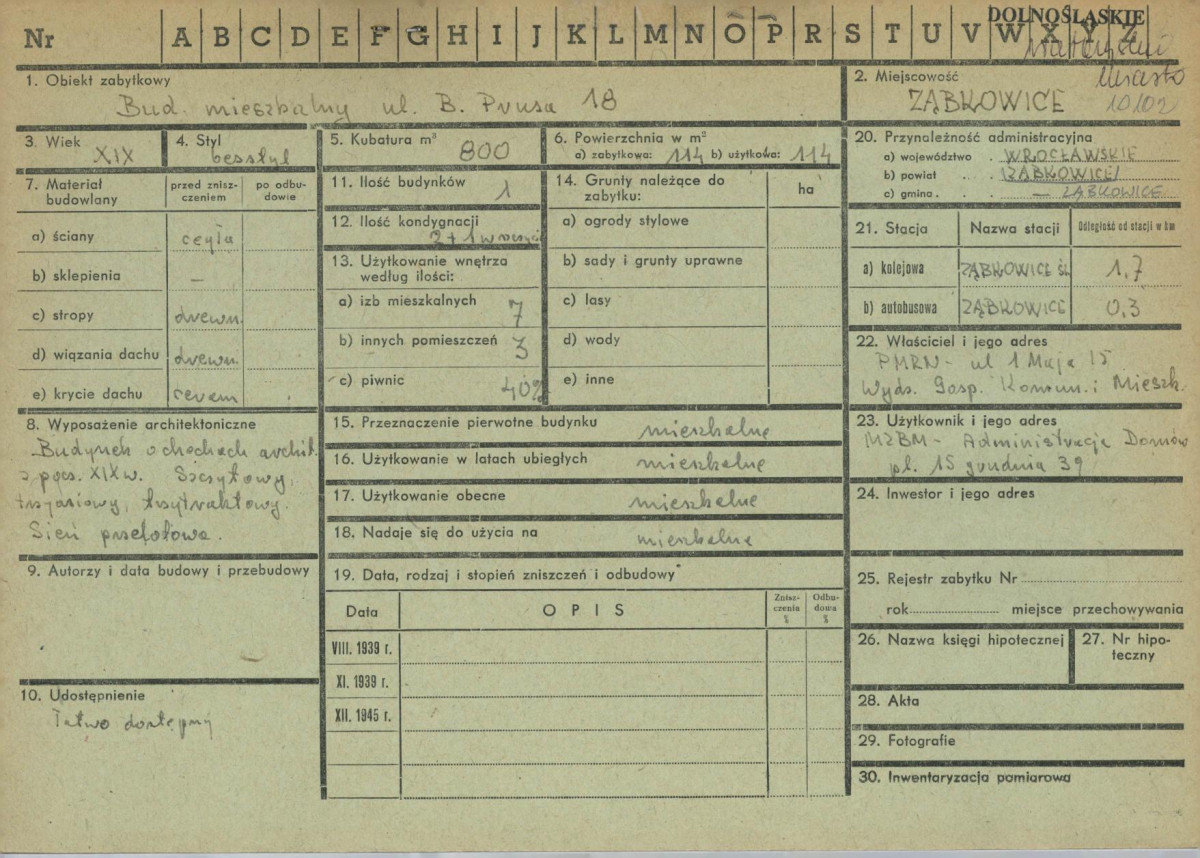 Nr A B C D E F G H I J K L M N O P R S T U V W X Y Z
DOLNOŚLĄSKIE
miasto
10102
1. Obiekt zabytkowy
Bud. mieszkalny ul. B. Prusa 18
2. Miejscowość
ZĄBKOWICE
3. Wiek
XIX
4. Styl
besstyl
5. Kubatura m³
800
6. Powierzchnia w m²
a) zabytkowa: 114 b) użytkowa: 114
20. Przynależność administracyjna
a) województwo WROCŁAWSKIE
b) powiat ZĄBKOWICE
c) gmina — ZĄBKOWICE
7. Materiał budowlany
przed zniszczeniem
po odbudowie
a) ściany cegła
b) sklepienia —
c) stropy drewn.
d) wiązania dachu drewn.
e) krycie dachu ceram
11. Ilość budynków 1
12. Ilość kondygnacji
2 + 1 w szczyci
13. Użytkowanie wnętrza
według ilości:
a) izb mieszkalnych 7
b) innych pomieszczeń 3
c) piwnic 40%
14. Grunty należące do
zabytku:
ha
a) ogrody stylowe
b) sady i grunty uprawne
c) lasy
d) wody
e) inne
21. Stacja
Nazwa stacji
Odległość od stacji w km
a) kolejowa ZĄBKOWICE ŚL 1,7
b) autobusowa ZĄBKOWICE 0,3
22. Właściciel i jego adres
PMRN - ul 1 Maja 15
Wydz. Gosp. Komun. i Mieszk.
8. Wyposażenie architektoniczne
Budynek o cechach archit.
z pocz. XIX w. Szczytowy,
trzyosiowy, trzytraktowy.
Sień przelotowa.
15. Przeznaczenie pierwotne budynku mieszkalne
16. Użytkowanie w latach ubiegłych mieszkalne
17. Użytkowanie obecne mieszkalne
18. Nadaje się do użycia na mieszkalne
23. Użytkownik i jego adres
MZBM - Administracja Domów
pl. 15 grudnia 39
24. Inwestor i jego adres
9. Autorzy i data budowy i przebudowy
19. Data, rodzaj i stopień zniszczeń i odbudowy
Data
OPIS
Zniszczenia %
Odbudowa %
VIII. 1939 r.
XI. 1939 r.
XII. 1945 r.
25. Rejestr zabytku Nr
rok miejsce przechowywania
26. Nazwa księgi hipotecznej
27. Nr hipoteczny
10. Udostępnienie
Łatwo dostępny
28. Akta
29. Fotografie
30. Inwentaryzacja pomiarowa